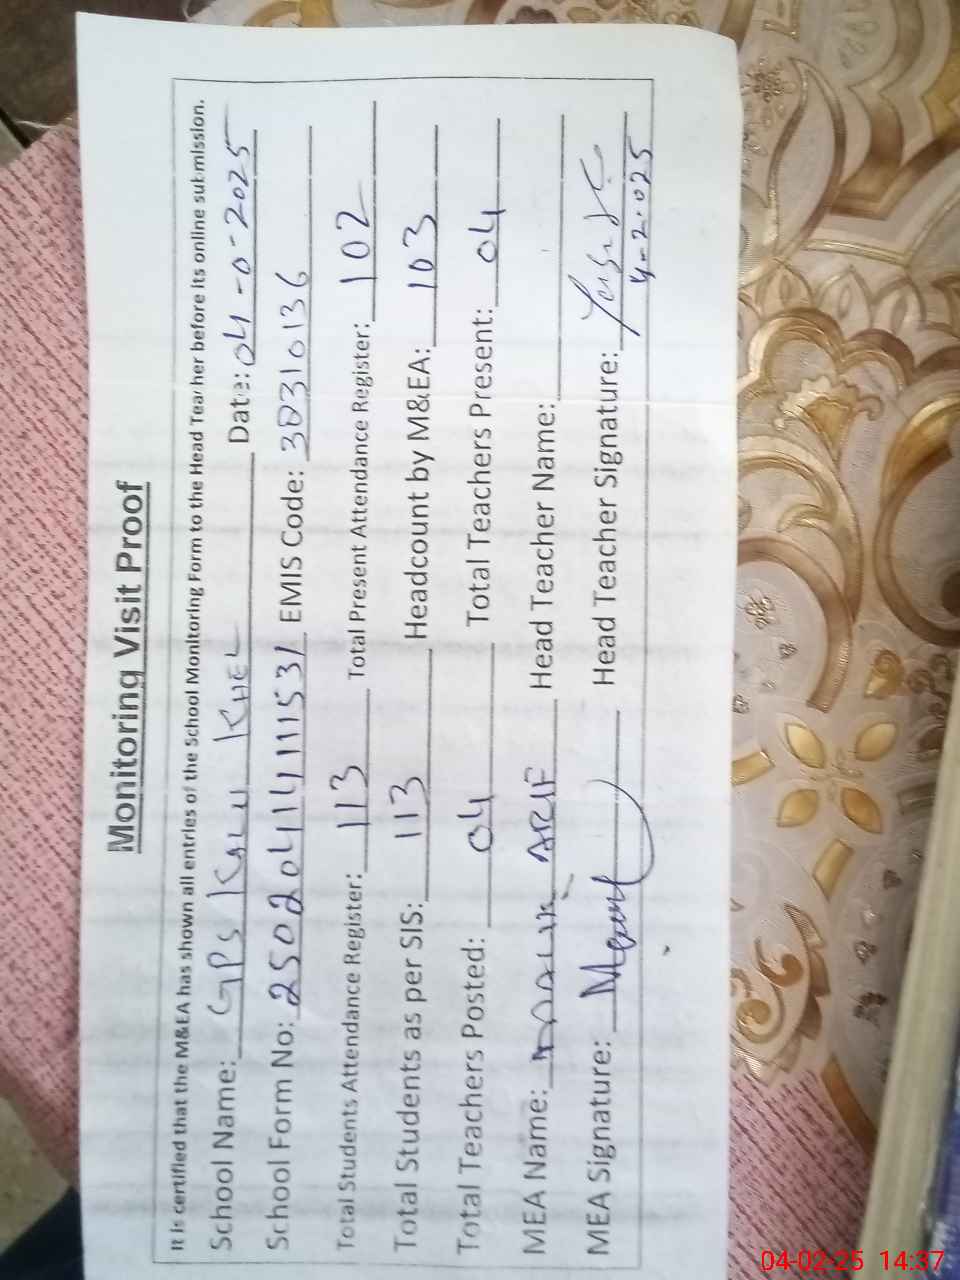 Monitoring Visit Proof
It is certified that the M&EA has shown all entries of the School Monitoring Form to the Head Teacher before its online submission.
School Name: GPS KALU KHEL Date: 04-0-2025
School Form No: 2502041411531 EMIS Code: 38310136
Total Students Attendance Register: 113 Total Present Attendance Register: 102
Total Students as per SIS: 113 Headcount by M&EA: 103
Total Teachers Posted: 04 Total Teachers Present: 04
MEA Name: MALIK ARIF Head Teacher Name:
MEA Signature: Head Teacher Signature:
4-2-025
04-02-25 14:37